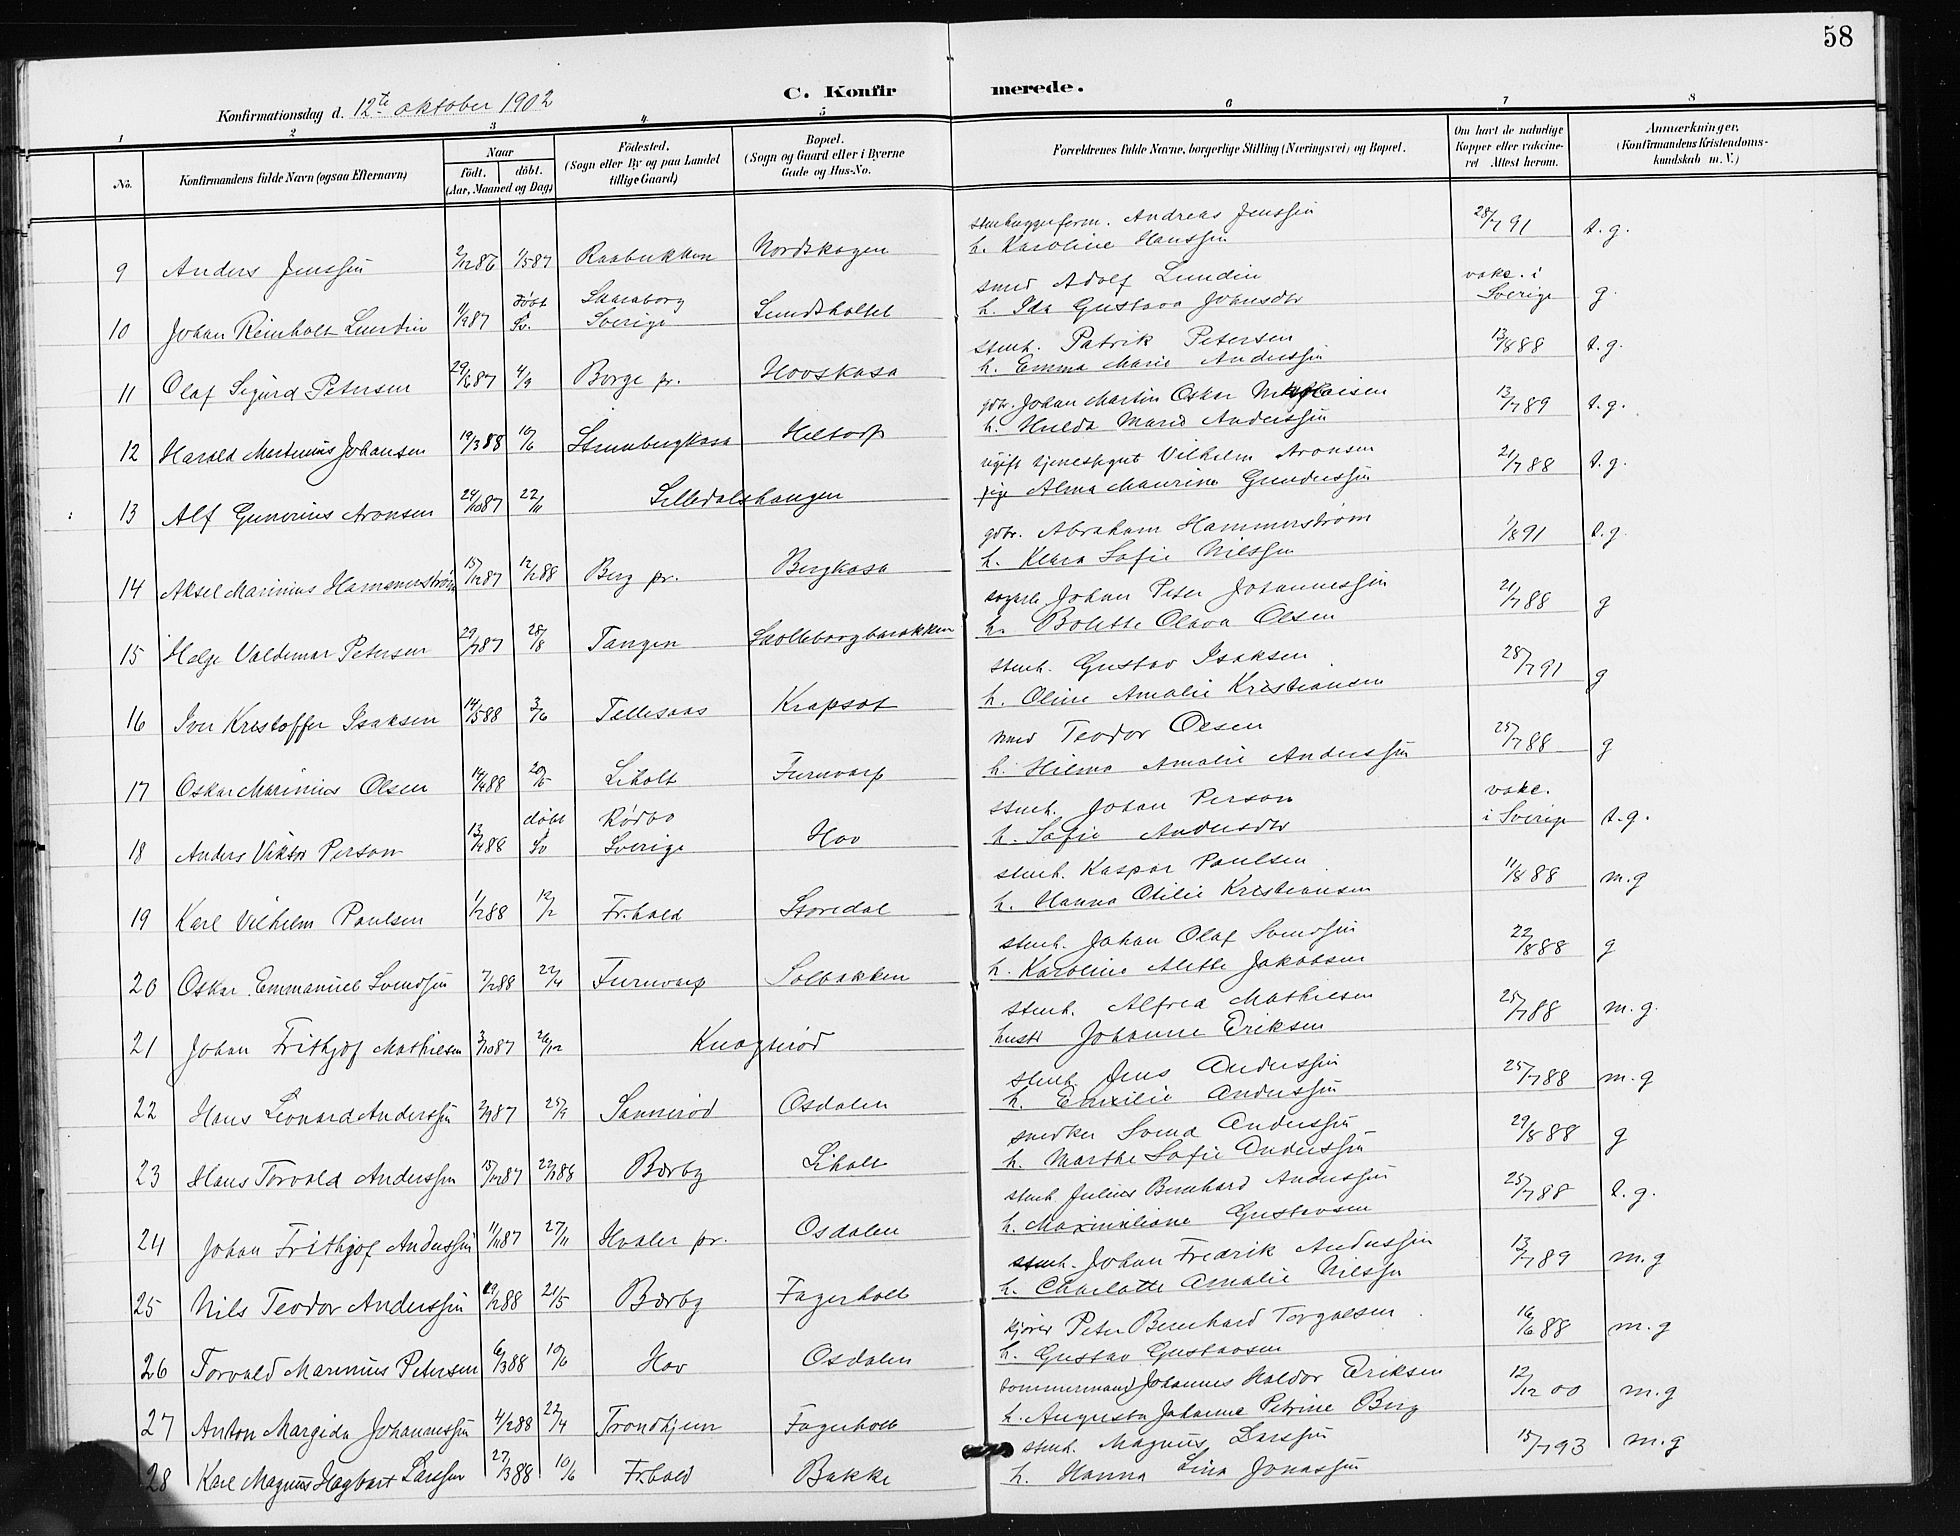 58
C. Konfirmerede.
Konfirmationsdag d. 12te oktober 1902
1 2 3 4 5 6 7 8
No.
Konfirmandens fulde Navn (ogsaa Efternavn)
Naar
Født. døbt.
(Aar, Maaned og Dag)
Fødested.
(Sogn eller By og paa Landet
tillige Gaard)
Bopæl.
(Sogn og Gaard eller i Byerne
Gade og Hus-No.
Forældrenes fulde Navne, borgerlige Stilling (Næringsvei) og Bopæl.
Om havt de naturlige
Kopper eller vakcine-
ret Attest herom.
Anmærkninger.
(Konfirmandens Kristendoms-
kundskab m. V.)
9 Anders Jenssen 2/12 86 1/5 87 Raabukken Nordskogen Andreas Jenssen 28/7 91 t.g.
h. Karoline Hanssen
10 Johan Reinholt Lundin 87 Født Sv. Skaraborg Sverige Lundsholtet smed Adolf Lundin vakc. i Sverige g.
h. Ida Gustava Johnsdtr
11 Olaf Sigurd Petersen 87 4/9 Borge pr. Hovskasa stenh. Patrik Petersen 13/8 88 t.g.
h. Emma Marie Anderssen
12 Harald Martinius Johansen 19/3 88 10/6 Stenbergkasa Heltorp gdbr. Johan Martin Oskar 13/7 89 t.g.
h. Hulda Marie Anderssen
13 Alf Gunerius Aronsen 24/10 87 22/11 Lilledalshaugen ugift tjenestegut Vilhelm Aronsen 21/7 88 t.g.
pige Alma Maurine Gundersen
14 Aksel Marinius Hammerstrøm 15/12 87 12/2 88 Berg pr. Bergkasa gdbr. Abraham Hammerstrøm 1/8 91 t.g.
h. Klara Sofie Nilssen
15 Helge Valdemar Petersen 29/7 87 28/8 Tangen Skolleborgbarakken Johan Peter Johannessen 21/7 88 g
h. Bolette Olava Olsen
16 Iver Kristoffer Isaksen 14/5 88 3/6 Tellesaas Krapsot stenh. Gustav Isaksen 28/7 91 g
h. Oline Amalie Kristiansen
17 Oskar Marinius Olsen 14/4 88 20/5 Liholt Furuvarp smed Teodor Olsen 25/7 88 g
h. Hilma Amalie Anderssen
18 Anders Viktor Person 13/4 88 døbt i Sv Rødbo Sverige Hov stenh. Johan Person vakc. i Sverige t.g.
h. Sofie Andersdtr
19 Karl Vilhelm Paulsen 1/1 88 12/2 Fr.hald Storedal stenh. Kaspar Paulsen 11/8 88 m.g
h. Hanna Otilie Kristiansen
20 Oskar Emmanuel Svendsen 7/2 88 22/4 Furuvarp Solbakken stenh. Johan Olaf Svendsen 22/8 88 g
h. Karoline Alette Jakobsen
21 Johan Frithjof Mathiesen 3/10 87 26/12 Knagterød stenh. Alfred Mathiesen 25/7 88 m.g.
hustr Johanne Eriksen
22 Hans Leonard Anderssen 2/9 87 25/9 Sannerød Osdalen stenh. Jens Anderssen 25/7 88 m.g
h. Emilie Anderssen
23 Hans Torvald Anderssen 15/12 87 22/1 88 Borby Liholt snedker Svend Anderssen 29/8 88 g
h. Marthe Sofie Anderssen
24 Johan Frithjof Anderssen 11/11 87 27/11 Hvaler pr. Osdalen stenh. Julius Bernhard Anderssen 25/7 88 t.g.
h. Maximiliane Gustavsen
25 Nils Teodor Anderssen 88 21/5 Borby Fagerholt stenh. Johan Fredrik Anderssen 13/7 89 m.g
h. Charlotte Amalie Nilssen
26 Torvald Marenius Petersen 6/3 88 10/6 Hov Osdalen kjører Peter Bernhard Torgalsen 16/6 88 m.g
h. Gustav Gustavsen
27 Anton Margido Johannessen 4/2 88 22/4 Trondhjem Fagerholt tommermand Johannes Haldor Eriksen 12/12 00 m.g
h. Augusta Johanna Petrine Berg
28 Karl Magnus Hagbart Larssen 27/3 88 10/6 Fr.hald Bakke stenh. Magnus Larssen 15/7 93 m.g
h. Hanna Lina Jonassen